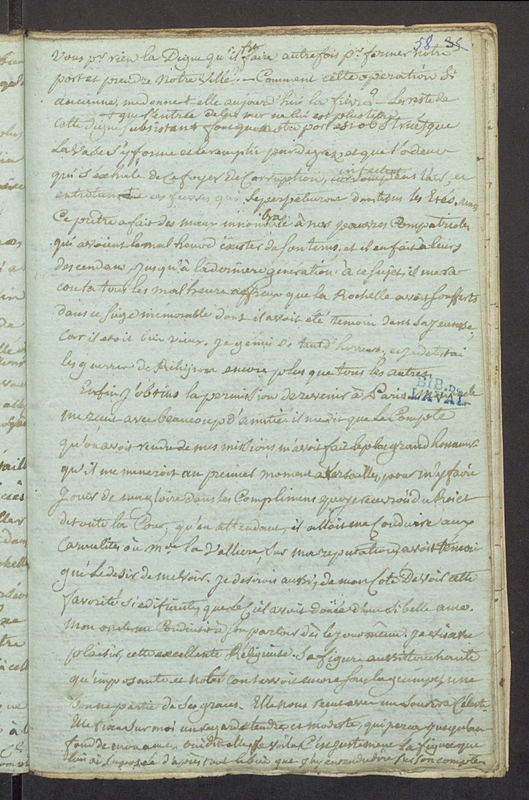 58 35
vous pr rien la Digue qu'il fit faire autrefois pr fermer notre
port et prendre notre ville. — Comment cette operation si
ancienne, me donne-t-elle aujourd'hui la fievre? — Le reste de
+ que l'entrée de la mer ne lui est plus libre
cette digue subsistant fait que notre port est obstrué, que
la vase s'y forme et le remplit par degrez, et que l'odeur
qui s'exhale de ce foyer de corruption, infectent l'air, et
entretient ces fievres qui se perpetueront dans tous les
Ce pretre a fait des maux innombrables à nos pauvres Compatriotes
qui avoient le malheur d'exister de son tems, et il en fait à leurs
descendans jusqu'à la derniere generation. à ce sujet il me ra-
conta tous les malheurs affreux que la Rochelle avoit soufferts
dans ce siege memorable dont il avoit été temoin dans sa jeunesse,
Car il etoit bien vieux. je gemis de tant d'horreurs, et je detestai
les guerres de Religion encore plus que tous les autres.
Enfin j'obtins la permission de revenir à Paris. mon oncle
BIB. DE
LAVAL
me reçut avec beaucoup d'amitié: il me dit que le Compte
qu'on avoit rendu de mes missions m'avoit fait le plus grand honneur
qu'il me meneroit au premier moment à Versailles, pour m'y faire
jouir de ma gloire dans les Complimens que je recevrois du Roi et
de toute la Cour, qu'en attendant, il alloit me conduire aux
Carmelites où Me la Valliere sur ma reputation, avoit temoigné
le desir de me voir. je desirois aussi, de mon coté de voir cette
favorite si edifiante, que le Ciel avoit douée d'une si belle ame.
Mon oncle me conduisit à son parloir dès le jour même. je vis avec
plaisir, cette excellente Religieuse. Sa figure aussi touchante
qu'imposante et noble conservoit encore sous la guimpe, une
bonne partie de ses graces. Elle nous reçut avec un sourire Celeste.
Elle fixa sur moi un regard tendre et modeste, qui perça jusqu'au
fond de mon ame. oui dit elle, voilà C'est justement la figure que
je lui ai supposée d'apres tout le bien que j'ai entendu dire sur son compte.